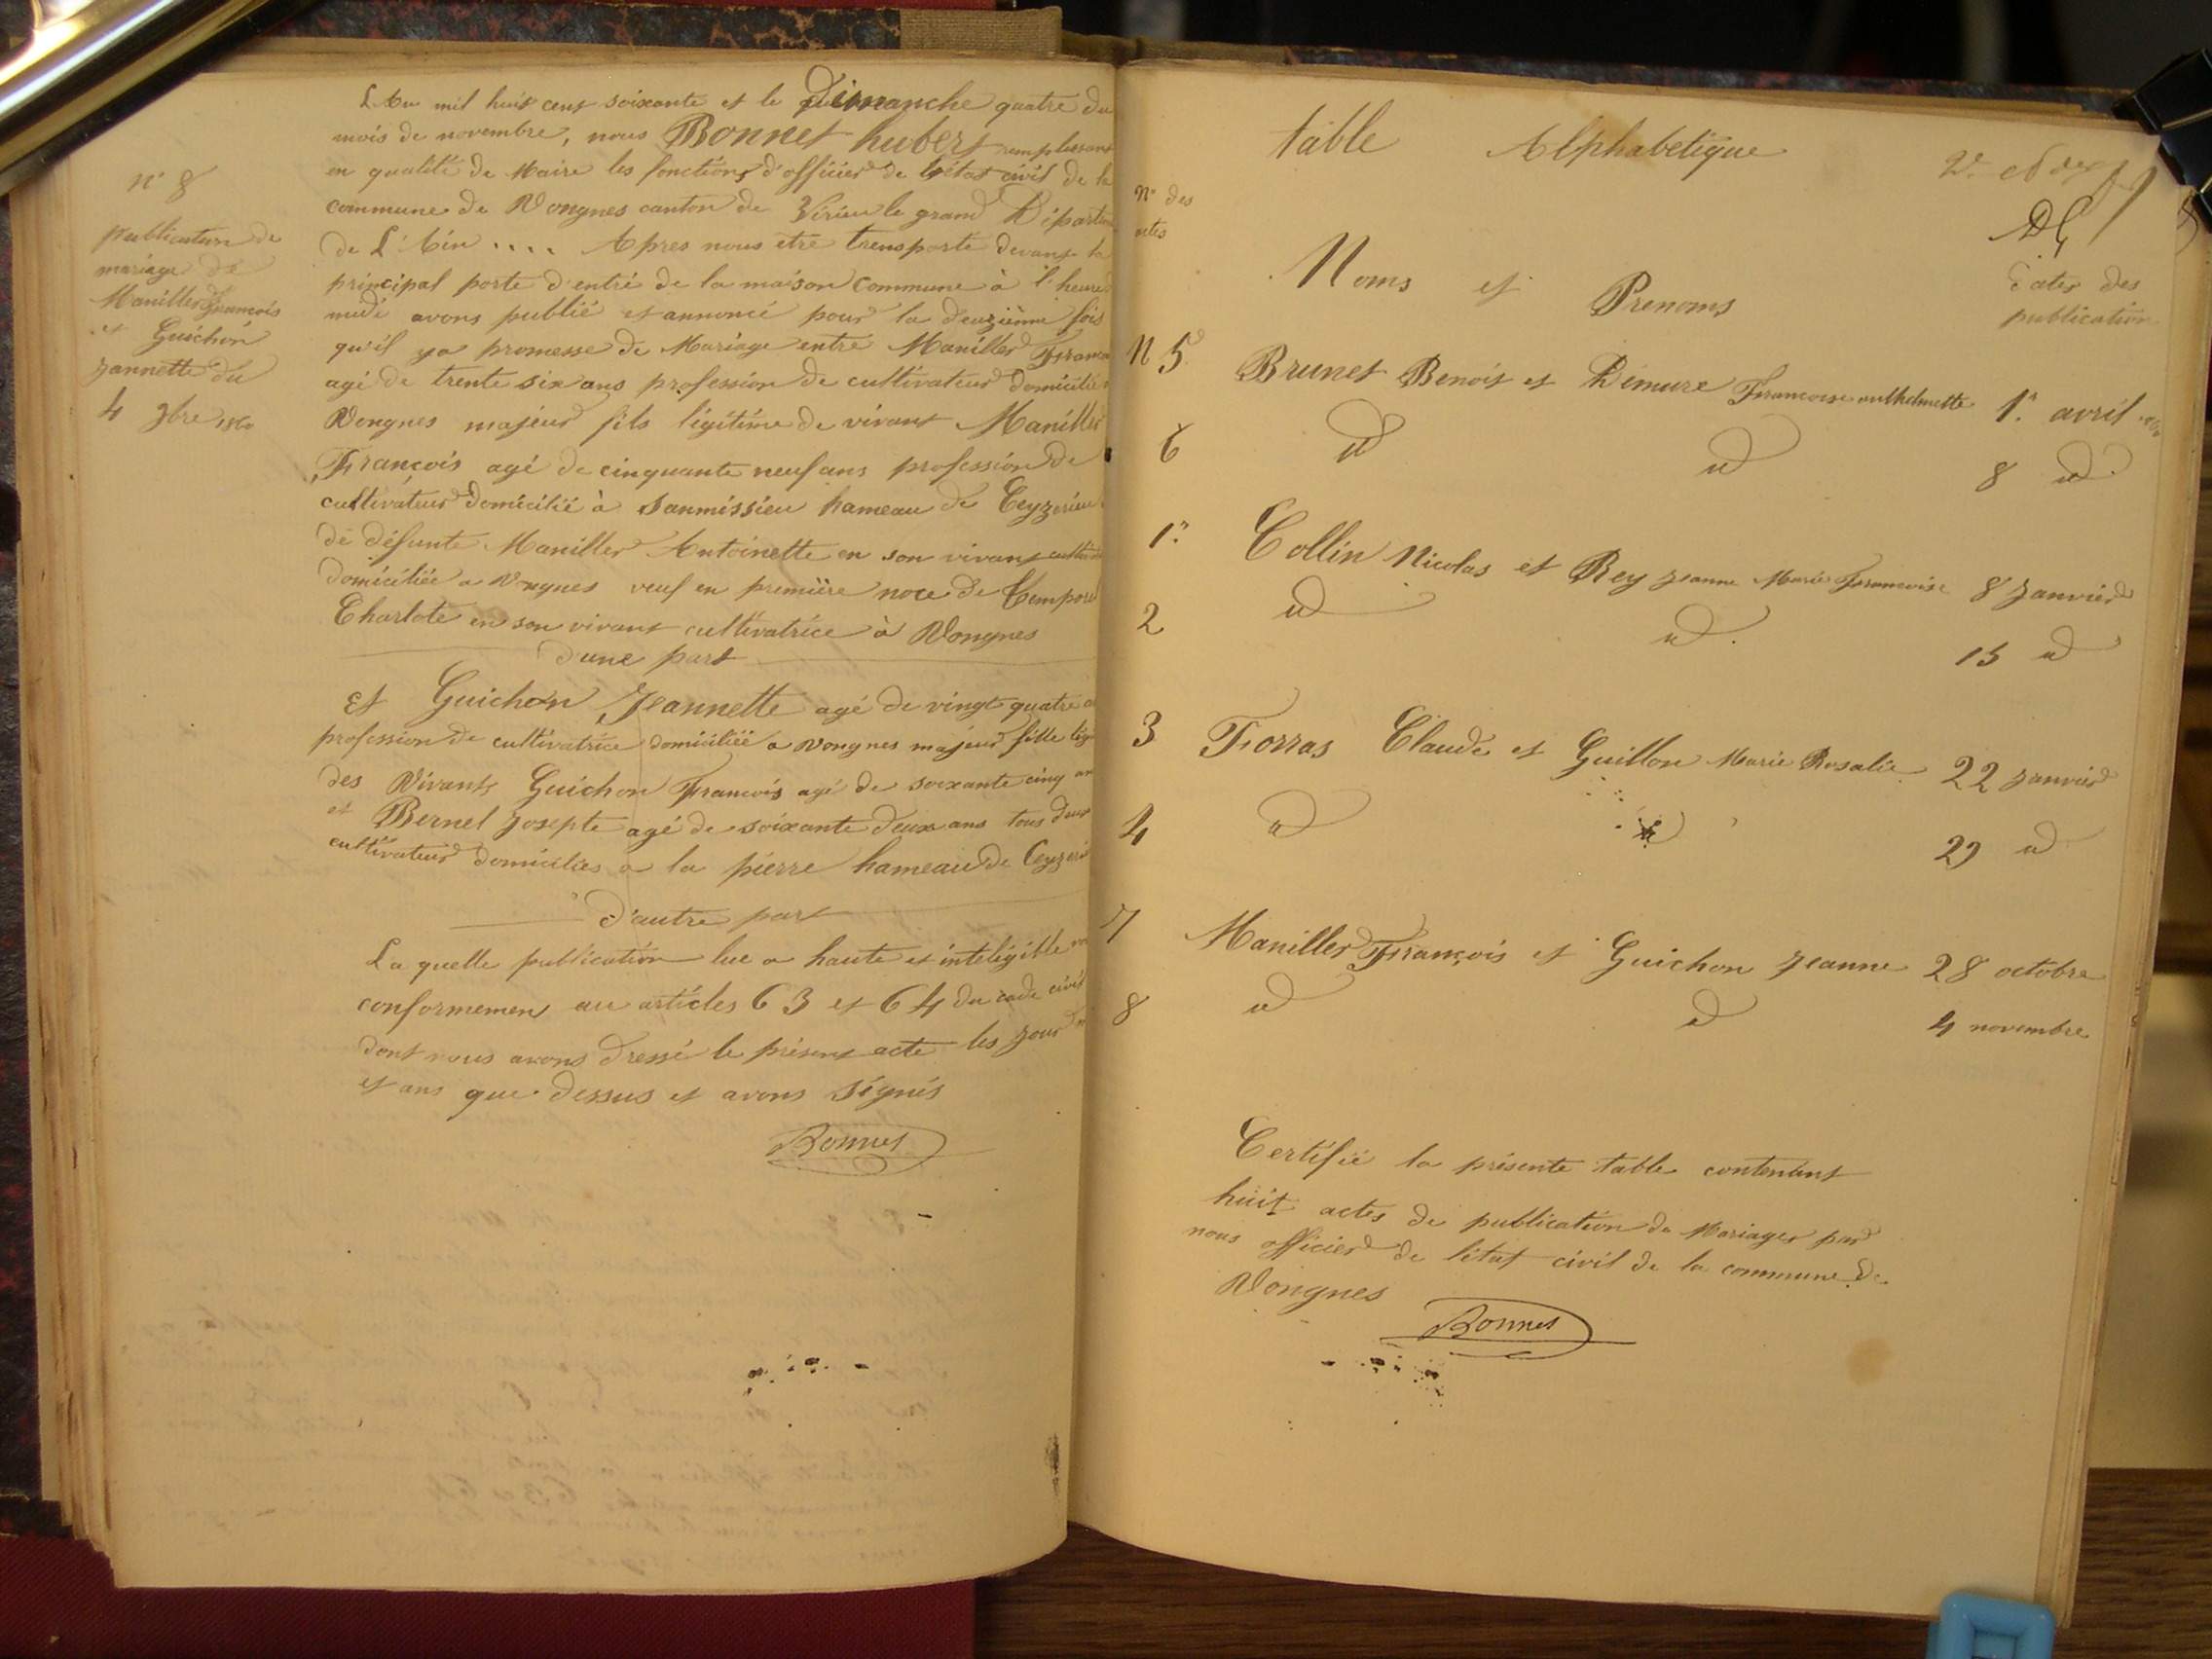 n° 8
publication de
mariage de
Maniller François
et Guichon
Jannette du
4 9bre 1860
L'An mil huit cent soixante et le Dimanche quatre du
mois de novembre, nous Bonnet hubert remplissant
en qualité de Maire les fonctions d'officier de l'état civil de la
commune de Vongnes canton de Virieu le grand Départem
de L'Ain .... Apres nous etre transporté devant la
principal porte d'entré de la maison commune à l'heure
midi avons publié et annoncé pour la deuzième fois
qu'il ya promesse de Mariage entre Maniller Franço
agé de trente six ans profession de cultivateur domicilié
Vongnes majeur fils légitime de vivant Maniller
François agé de cinquante neuf ans profession de
cultivateur domicilié à sanmissieu hameau de Ceyzerieu
de défunte Maniller Antoinette en son vivant
domiciliée a Vongnes veuf en première noce de Tempore
Charlote en son vivant cultivatrice à Vongnes
d'une part
et Guichon Jeannette agé de vingt quatre a
profession de cultivatrice domiciliée a vongnes majeur fille lég
des Vivants Guichon François agé de soixante cinq an
et Bernel Josepte agé de soixante deux ans tous deux
cultivateur domiciliés a la pierre hameau de Ceyzeri
d'autre part
La quelle publication lue a haute et inteligible
conformemen au articles 63 et 64 du code civil
dont nous avons dressé le présent acte les jour
et ans que dessus et avons signés
Bonnet
table Alphabetique
N° des
actes
Noms et Prenoms
Dates des
publication
N 5 Brunet Benoit et Dimure Francoise anthelmette 1er avril 1860
6 id id 8 id
1er Collin Nicolas et Rey Jeanne Marie Francoise 8 Janvier
2 id id 15 id
3 Forras Claude et Guillon Marie Rosalie 22 Janvier
4 id id 29 id
7 Maniller François et Guichon Jeanne 28 octobre
8 id id 4 novembre
Certifié la présente table contenant
huit actes de publication de Mariages par
nous officier de l'état civil de la commune de
Vongnes
Bonnet